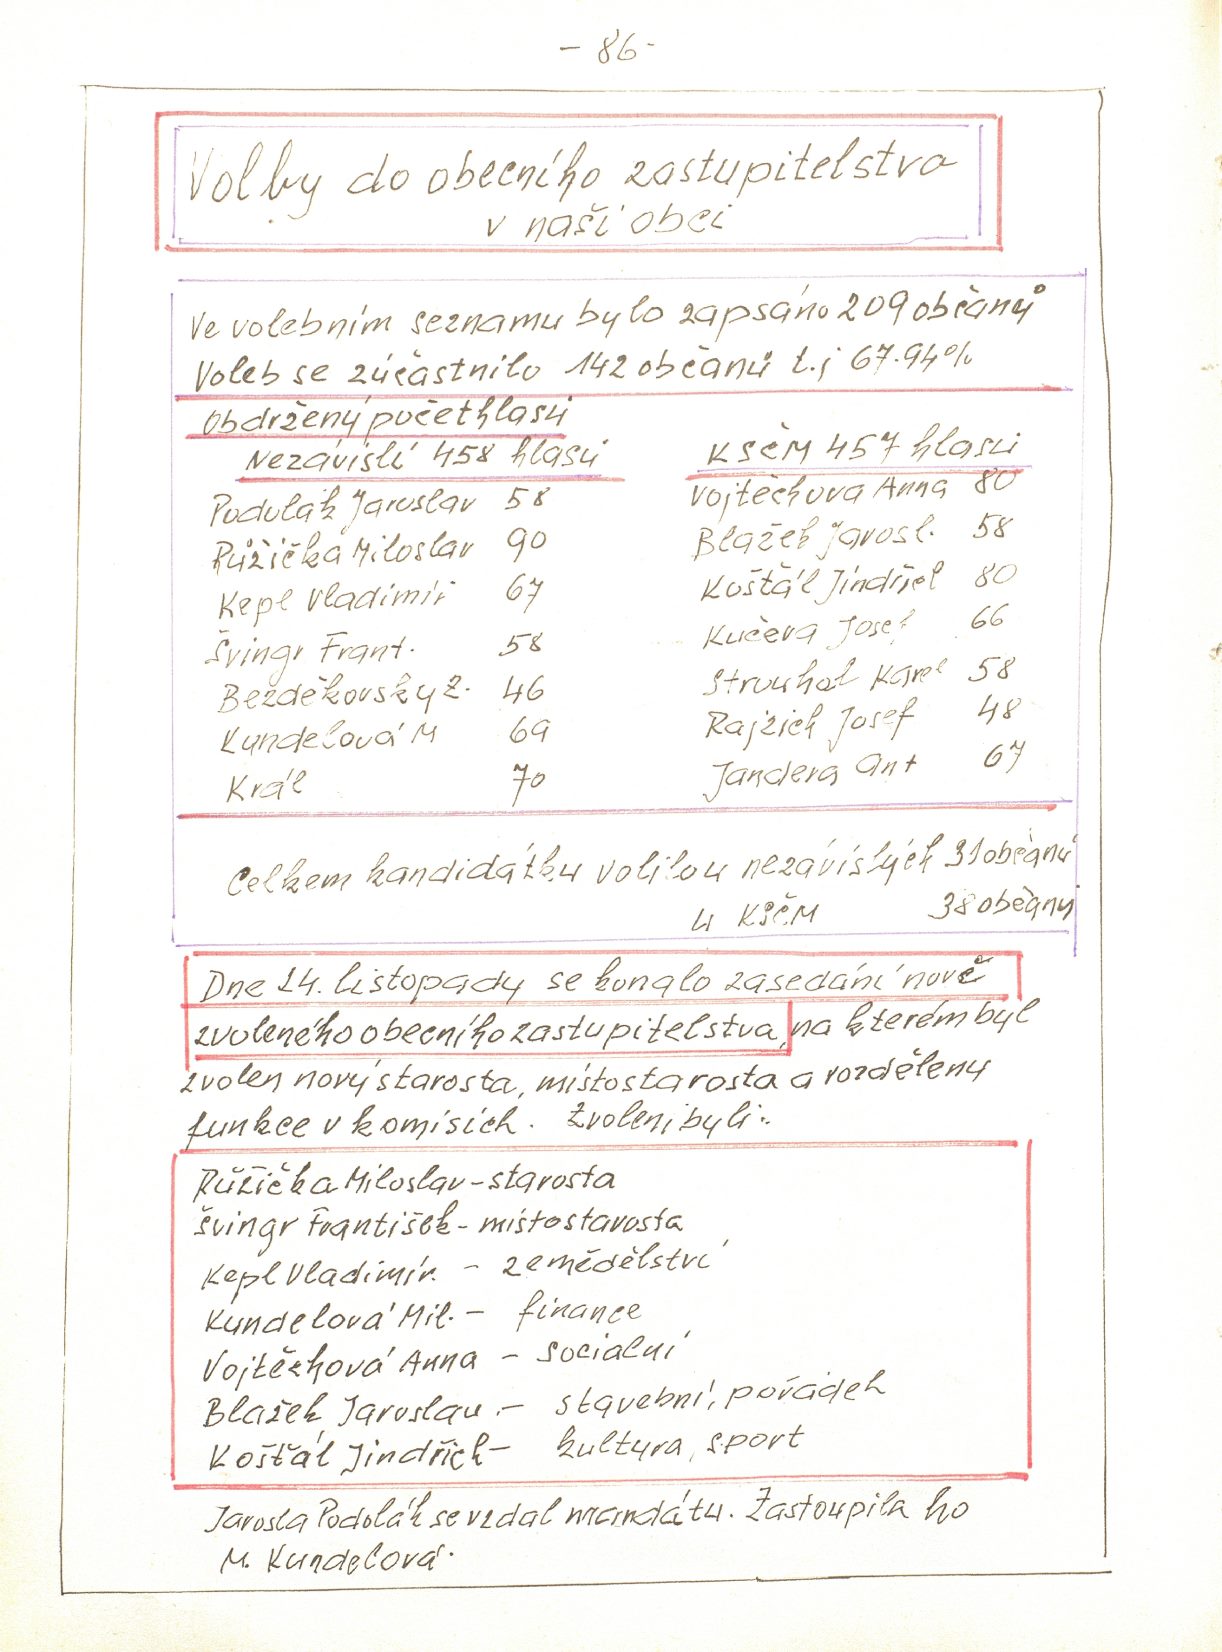 - 86 -
Volby do obecního zastupitelstva
v naší obci
Ve volebním seznamu bylo zapsáno 209 občanů
Voleb se zúčastnilo 142 občanů t.j 67.94%
Obdržený počet hlasů
Nezávislí 458 hlasů
KSČM 457 hlasů
Podolák Jaroslav 58
Vojtěchova Anna 80
Růžička Miloslav 90
Blažek Jarosl. 58
Kepl Vladimír 67
Košťál Jindřich 80
Švingr Frant. 58
Kučera Josef 66
Bezděkovský Z. 46
Strouhal Karel 58
Kundelová M 69
Rajzich Josef 48
Král 70
Jandera Ant 67
Celkem kandidátku volilo u nezávislých 31 občanů
u KSČM 38 občanů
Dne 24. listopadu se konalo zasedání nově
zvoleného obecního zastupitelstva, na kterém byl
zvolen nový starosta, místostarosta a rozděleny
funkce v komisích. Zvoleni byli:
Růžička Miloslav - starosta
Švingr František - místostarosta
Kepl Vladimír - zemědělství
Kundelová Mil. - finance
Vojtěchová Anna - sociální
Blažek Jaroslav - stavební, pořádek
Košťál Jindřich - kultura, sport
Jarosla Podolák se vzdal mandátu. Zastoupila ho
M. Kundelová.